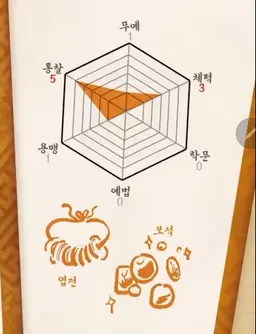 무예
1
통찰
5
체력
3
용맹
1
학문
0
예법
0
보석
엽전